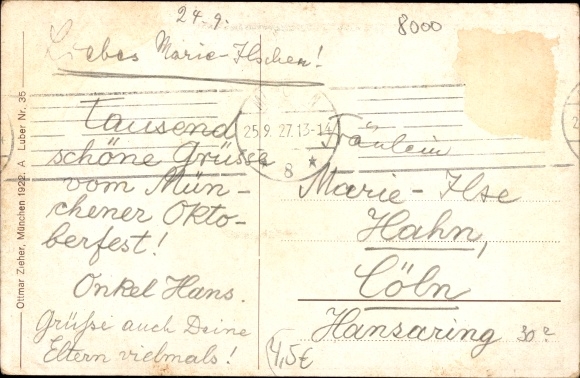 24.9.
8000
Liebes Marie-Ilschen!
25.9.27.13-14
8
Tausend
schöne Grüsse
vom Mün-
chener Okto-
berfest!
Onkel Hans.
Grüsse auch Deine
Eltern vielmals!
Fräulein
Marie-Ilse
Hahn,
Cöln
Hansaring 30?
4,5€
Ottmar Zieher, München 1922. A Luber Nr. 35